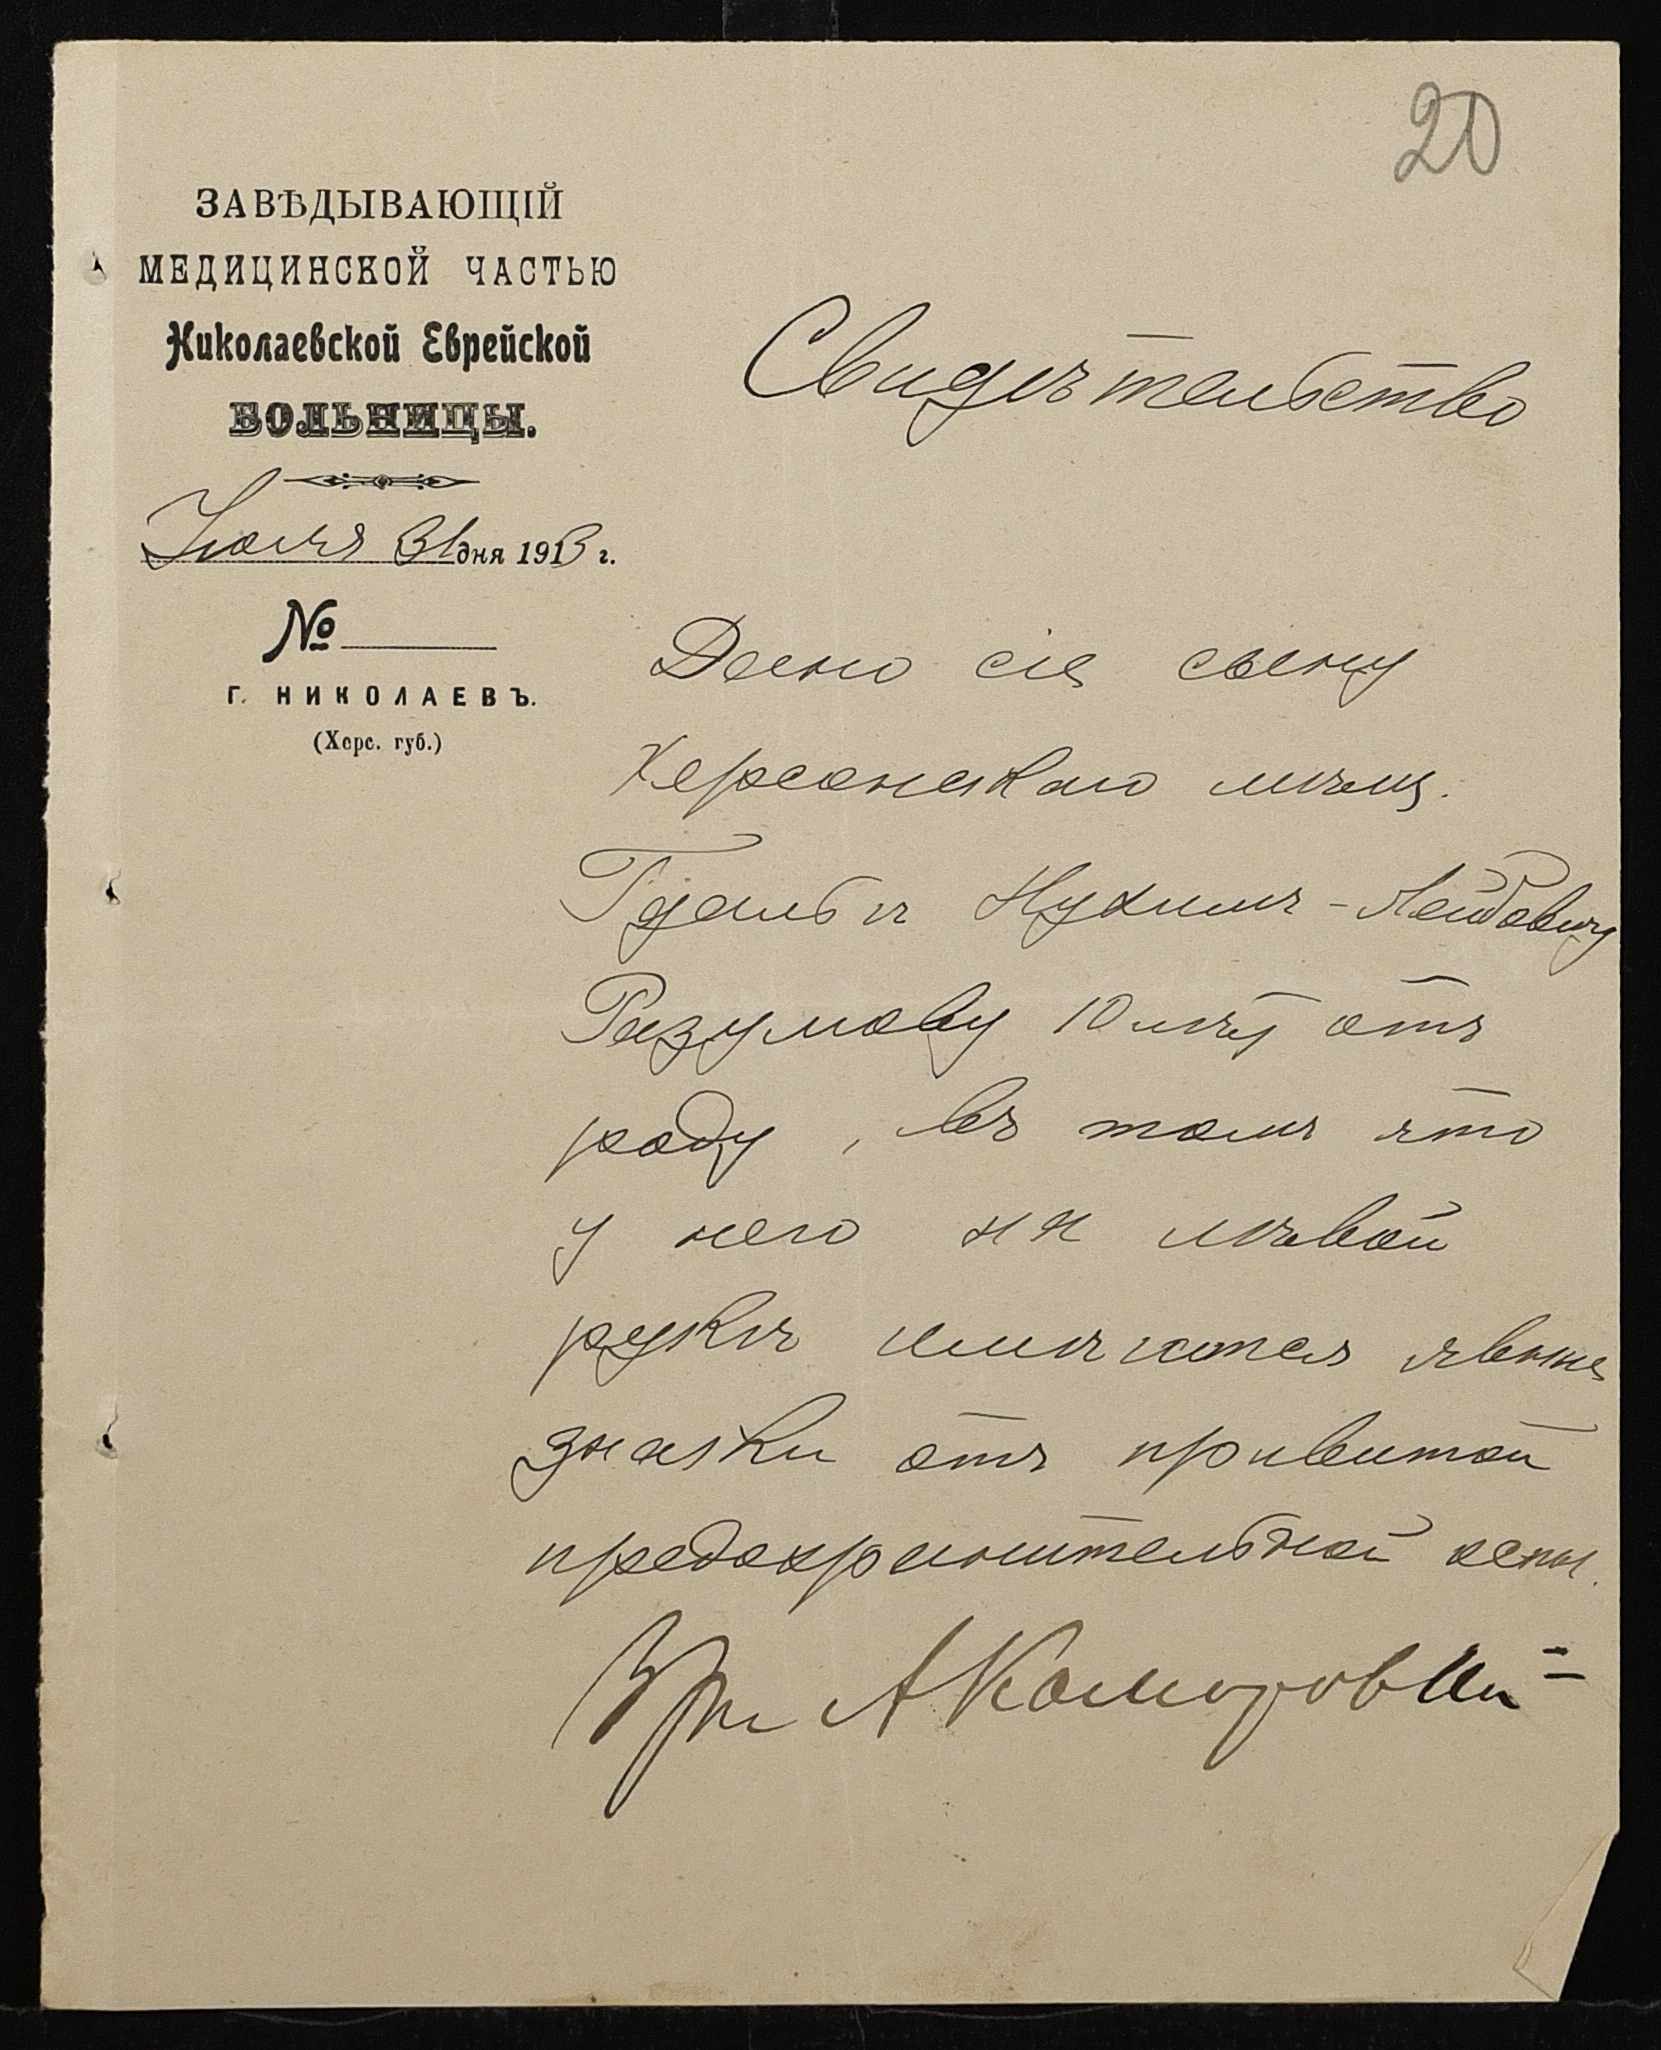 20
ЗАВѢДЫВАЮЩІЙ
МЕДИЦИНСКОЙ ЧАСТЬЮ
Николаевской Еврейской
БОЛЬНИЦЫ.
Іюля 31 дня 1913 г.
№
Г. НИКОЛАЕВЪ.
(Херс. губ.)
Свидѣтельство
Дано сіе сыну
Херсонскаго мѣщ.
Нухимъ-Лейбовичу
Разумову 10 лѣтъ отъ
роду, въ томъ что
у него на лѣвой
рукѣ имѣются явные
значки отъ привитой
предохранительной оспы.
Врач А Комаровскій